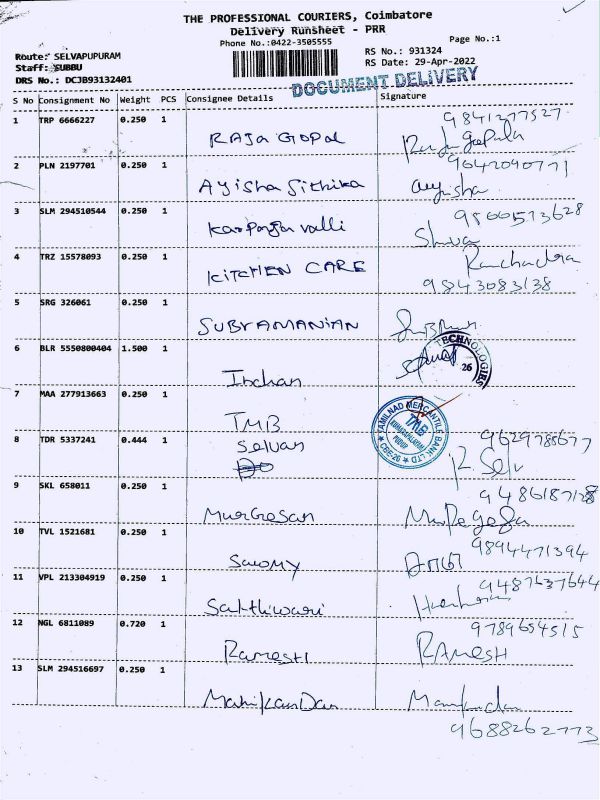 THE PROFESSIONAL COURIERS, Coimbatore
Delivery Runsheet - PRR
Phone No.:0422-3505555
Page No.:1
Route: SELVAPUPURAM
Staff: SUBBU
DRS No.: DCJB93132401
RS No.: 931324
RS Date: 29-Apr-2022
DOCUMENT DELIVERY
S No Consignment No Weight PCS Consignee Details Signature
1 TRP 6666227 0.250 1 9841277527
RAJA GOPAL
2 PLN 2197701 0.250 1 9642040771
Ayisha Sithika ayisha
3 SLM 294510544 0.250 1
Karpaga valli Shiva
4 TRZ 15578093 0.250 1
KITCHEN CARE 9843083138
5 SRG 326061 0.250 1
SUBRAMANIAN
6 BLR 5550800404 1.500 1 TECHNOLOGIES
26
7 MAA 277913663 0.250 1
TMB TAMILNAD MERCANTILE BANK LTD
TMB
8 TDR 5337241 0.444 1
Selvan R. Selv
9 SKL 658011 0.250 1
MurGesan
10 TVL 1521681 0.250 1 9894471394
11 VPL 213304919 0.250 1 9487637644
12 NGL 6811089 0.720 1 9789654515
RAMESH RAMESH
13 SLM 294516697 0.250 1
ManiKanDan
9688262773